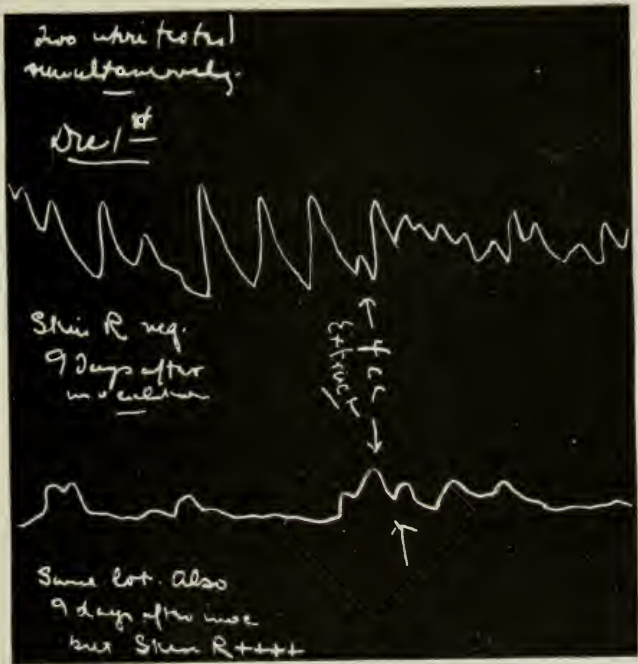 Two uteri tested
simultaneously.
Dec 1st
Skin R neg.
9 Days after
inoculation
4 cc
Extract
Same lot. Also
9 days after inoc
but Skin R++++